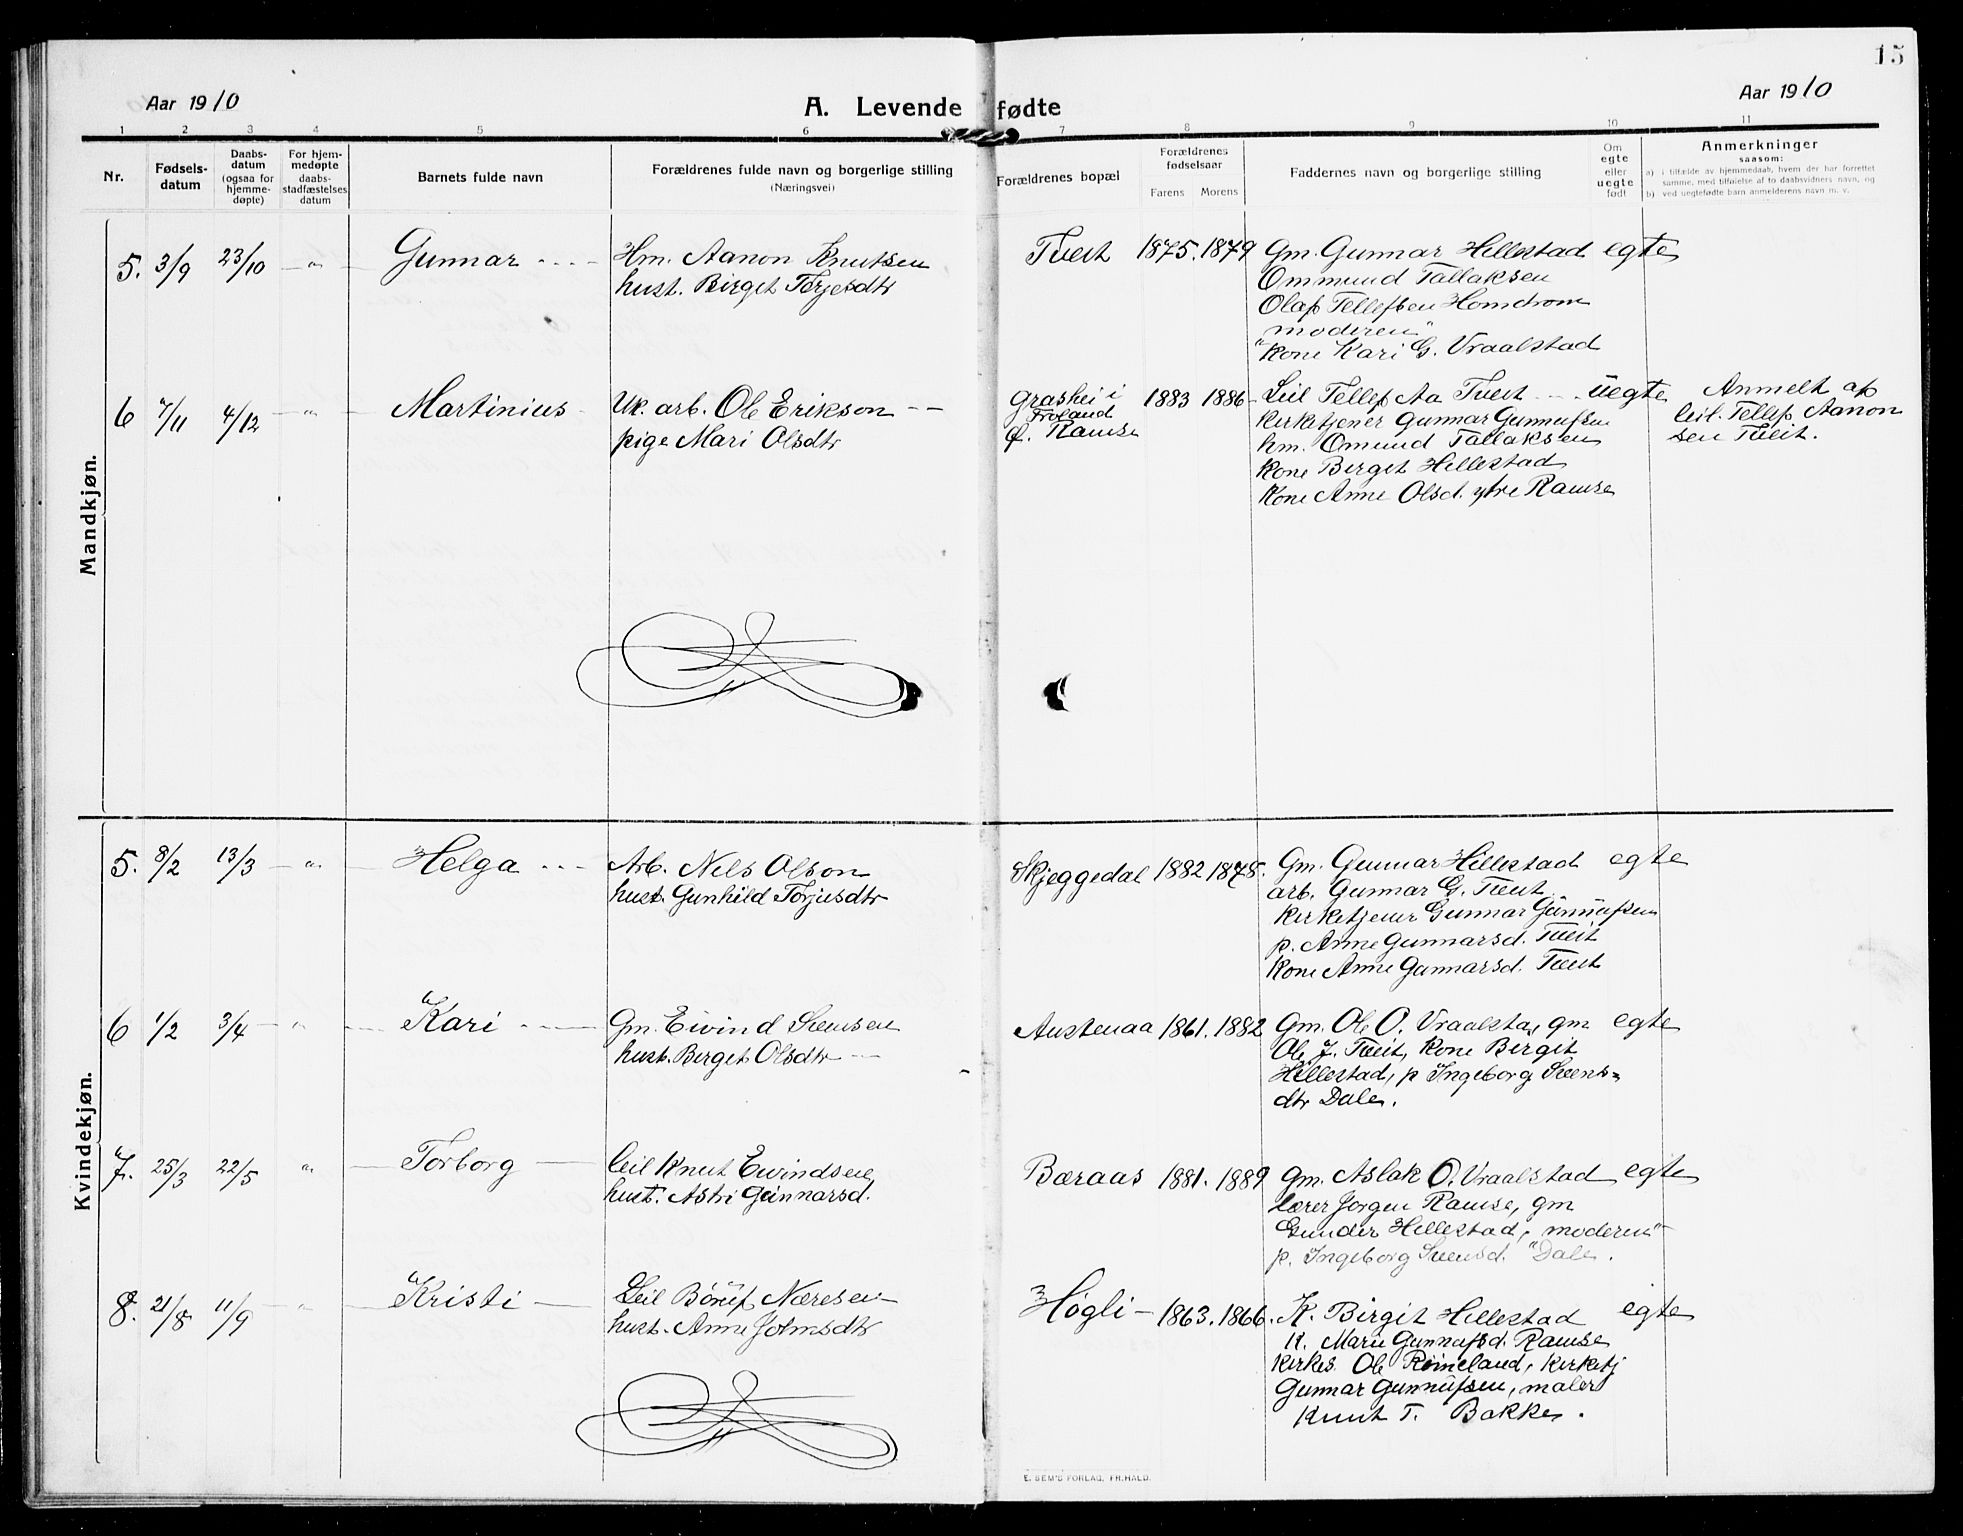 15
Aar 1910
A. Levende fødte
Aar 1910
1 2 3 4 5 6 7 8 9 10 11
Nr.
Fødsels-
datum
Daabs-
datum
(ogsaa for
hjemme-
døpte)
For hjem-
medøpte
daabs-
stadfæstelses
datum
Barnets fulde navn
Forældrenes fulde navn og borgerlige stilling
(Næringsvei)
Forældrenes bopæl
Forældrenes
fødselsaar
Farens Morens
Faddernes navn og borgerlige stilling
Om
egte
eller
uegte
født
Anmerkninger
saasom:
a) i tilfælde av hjemmedaab, hvem der har forrettet
samme, med tilføielse af to daabsvidners navn, og
b) ved uegtefødte barn anmelderens navn m. v.
Mandkjøn.
5. 3/9 23/10 — „ — Gunnar
Hm. Aanon Knutsen
hust. Birget Terjesdtr
Tveit 1875. 1879
Gm. Gunnar Hillestad egte
Ommund Tallaksen
Olaf Tellefsen Homdrom
"moderen"
Kone Kari G. Vraalstad
6 7/11 4/12 — „ — Martinius
Uk. arb. Ole Erikson
pige Mari Olsdtr
Grashei i
Froland
f. Ramse
1883 1886
Leil Tellef Aa Tveit uegte
Kirketjener Gunnar Gunnufsen
hm. Omund Tallaksen
Kone Birgit Hillestad
Kone Anne Olsd. ytre Ramse
Anmelt af
leil. Tellef Aanon
sen Tveit.
Kvindekjøn.
5. 8/2 13/3 — „ — Helga
Arb. Nels Olson
hust. Gunhild Torjusdtr
Skjeggedal 1882 1878.
Gm. Gunnar Hillestad egte
arb. Gunnar G. Tveit
Kirketjener Gunnar Gunnufsen
p. Anne Gunnarsd. Tveit
Kone Anne Gunnarsd. Tveit
6 1/2 3/4 — „ — Kari
Gm. Eivind Svensen
hust. Birget Olsdtr
Austenaa 1861. 1882
Gm. Ole O. Vraalsta, gm egte
Ole J. Tveit, Kone Birgit
Hillestad, p Ingeborg Svens-
dtr Dale.
7. 25/3 22/5 „ — Torborg —
Leil Knut Eivindsen
hust. Astri Gunnarsd.
Bæraas 1881. 1889
Gm. Aslak O. Vraalstad egte
Lærer Jorgen Ramse, gm
Gunder Hillestad, "moderen"
p. Ingeborg Svensd. Dale.
8. 21/8 11/9 — „ — Kristi —
Leil Bönuf Næresen
hust. Anne Jonnsdtr
Høgli — 1863. 1866.
K. Birgit Hillestad egte
K. Marie Gunnufsd. Ramse
Kirkes. Ole Reineland, Kirketj
Gunnar Gunnufsen, maler
Knut T. Bakke.
E. SEM'S FORLAG, FR.HALD.